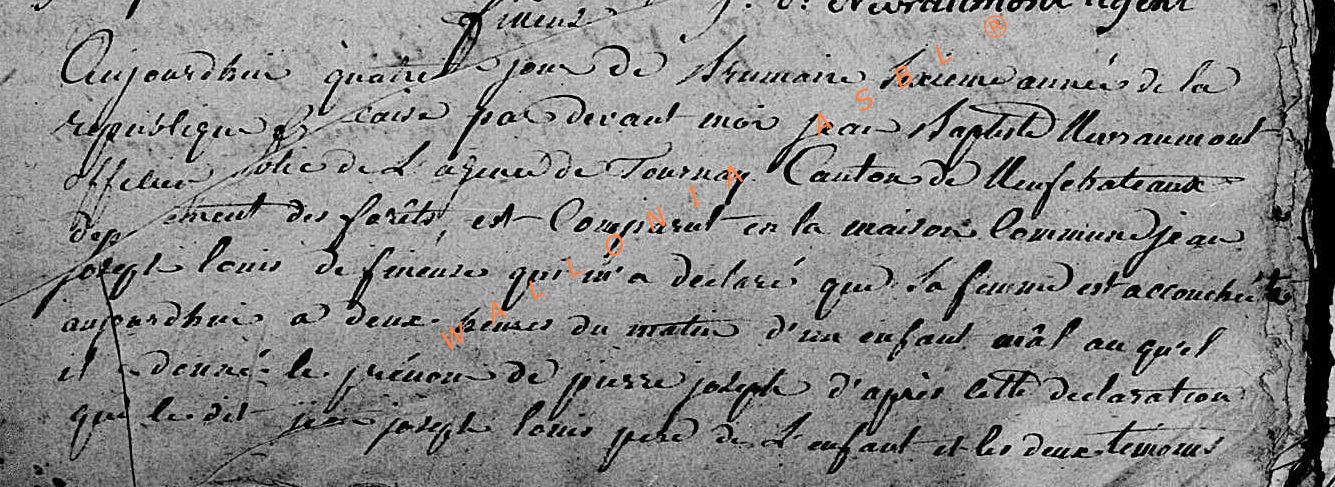 fineuse J. B. Nevraumont agent
Aujourdhui quatre jour de Brumaire sixieme année de la
republique caise par devant moi jean Baptiste Nevraumont
officier blic de L'agence de Tournay Canton de Neufchateaux
dep ement des forêts, est Comparut en la maison Commune jean
joseph louis de fineuse qui m'a declaré que sa femme est accouchée
aujourdhui a deux heures du matin d'un enfant mâl au qu'el
il a donné le prénom de pierre joseph d'après cette declaration
que le dit jean joseph louis pere de L'enfant et les deux temoins
WALLONIA ASBL ®